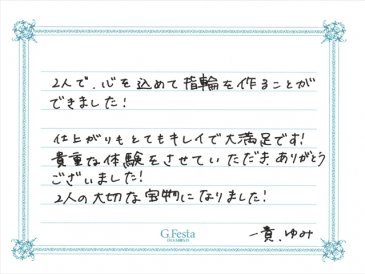 2人で、心を込めて指輪を作ることが
できました!
仕上がりもとてもキレイで大満足です!
貴重な体験をさせていただき、ありがとう
ございました!
2人の大切な宝物になりました!
G.Festa
一貴、ゆみ